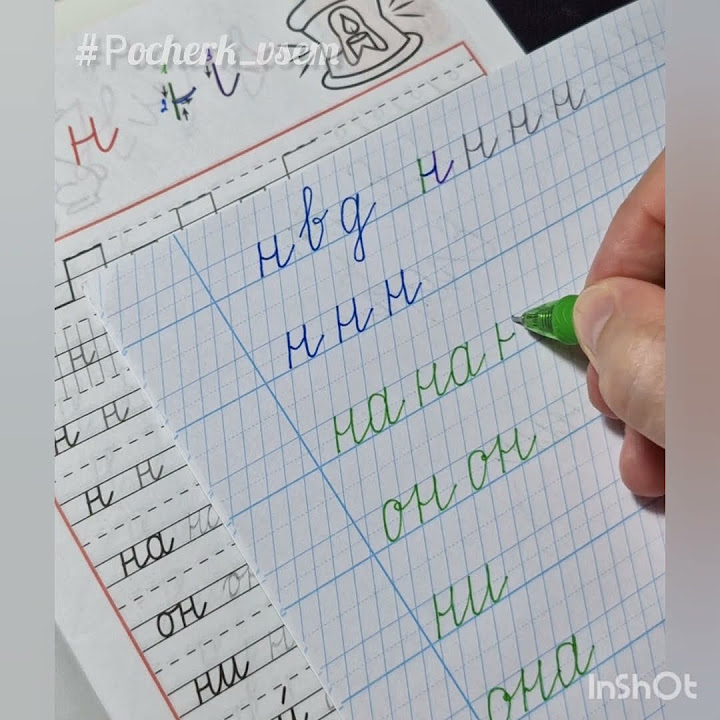 # Pocherk_vsem
н
н в д н н н н н
н н н
на на н
он он
ни
она
н
н н
н н
на на
он он
ни н
InShOt